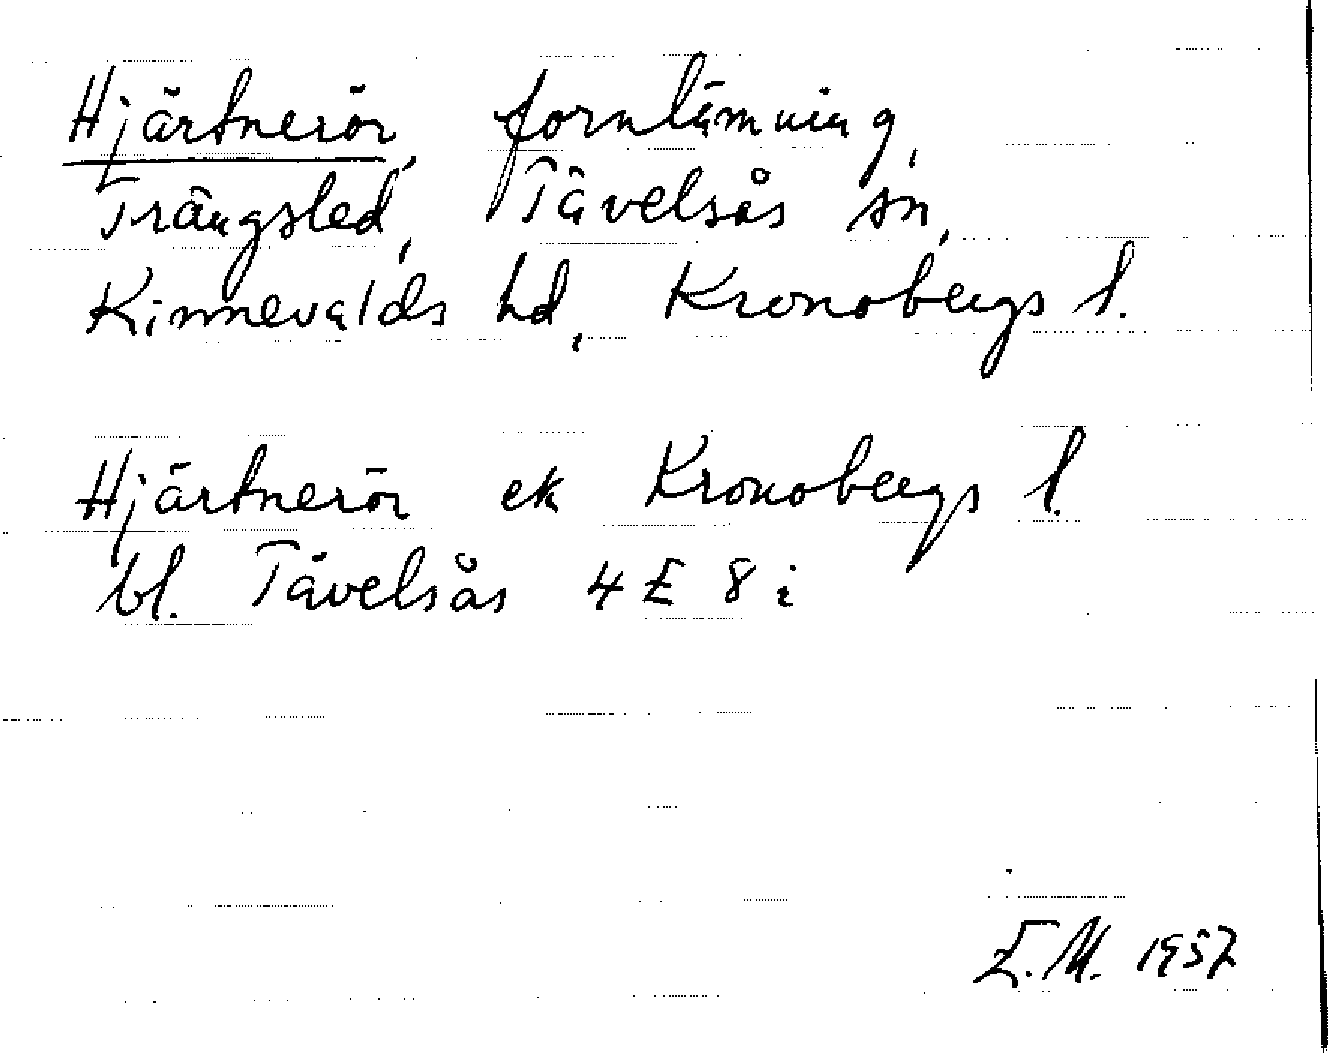 Hjärtnerör, fornlämning,
Trängsled, Tävelsås sn,
Kinnevalds hd, Kronobergs l.
Hjärtnerör ek Kronobergs l.
bl. Tävelsås 4 E 8 i
E.M. 1957